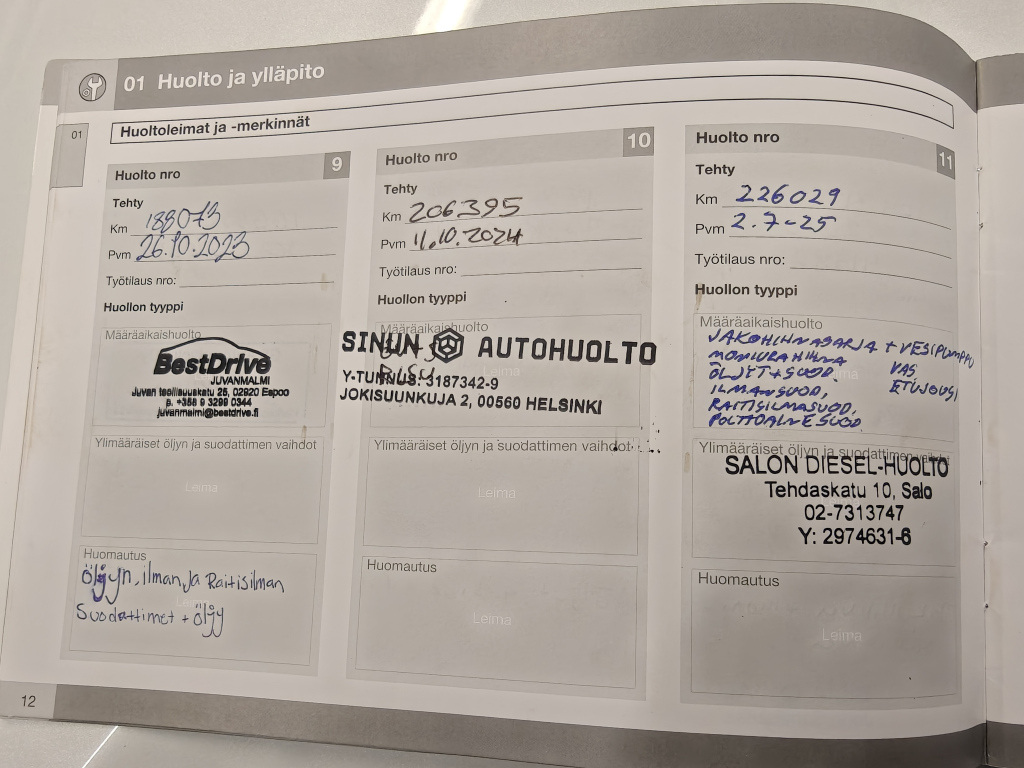 01 Huolto ja ylläpito
01
Huoltoleimat ja -merkinnät
Huolto nro 9
Tehty
Km 188073
Pvm 26.10.2023
Työtilaus nro:
Huollon tyyppi
Määräaikaishuolto
BestDrive
JUVANMALMI
Juvan teollisuuskatu 25, 02920 Espoo
p. +358 9 3299 0344
juvanmalmi@bestdrive.fi
Ylimääräiset öljyn ja suodattimen vaihdot
Leima
Huomautus
öljyn, ilman, Ja Raitisilman
Leima
Suodattimet + öljy
Huolto nro 10
Tehty
Km 206395
Pvm 11.10.2024
Työtilaus nro:
Huollon tyyppi
Määräaikaishuolto
SINUN AUTOHUOLTO
Y-TUNNUS: 3187342-9
JOKISUUNKUJA 2, 00560 HELSINKI
Ylimääräiset öljyn ja suodattimen vaihdot
Leima
Huomautus
Leima
Huolto nro 11
Tehty
Km 226029
Pvm 2.7-25
Työtilaus nro:
Huollon tyyppi
Määräaikaishuolto
JAKOHIHNASARJA + VESIPUMPPU
MONIURAHIHNA VAS
ÖLJYT + SUOD. ETUJOUSI
ILMANSUOD,
RAITISILMASUOD,
POLTTOAINESUOD
Ylimääräiset öljyn ja suodattimen vaihdot
SALON DIESEL-HUOLTO
Tehdaskatu 10, Salo
02-7313747
Y: 2974631-6
Huomautus
Leima
12